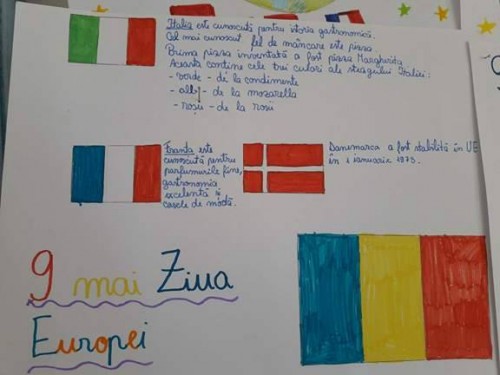 Italia este cunoscută pentru istoria gastronomică.
Cel mai cunoscut fel de mâncare este pizza
Prima pizza inventată a fost pizza Margherita
Aceasta conține cele trei culori ale steagului Italiei:
- verde - de la condimente
- alb - de la mozarella
- roșu - de la rosii
Franța este
cunoscută pentru
parfumurile fine,
gastronomia
excelentă și
casele de modă.
Danemarca a fost stabilită în UE
în 1 ianuarie 1973.
9 mai Ziua
Europei